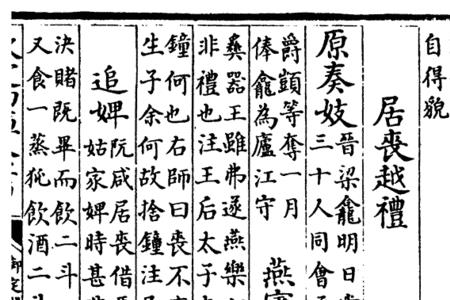 自得貌
居喪越禮
原奏妓晉梁龕明日
三十人同會
爵顗等奪一月
俸龕為廬江守
燕
彝器王雖弗遂燕樂
非禮也注王后太子
鐘何也右師曰喪不
生子余何故捨鐘注
追婢阮咸居喪借
姑家婢時甚
決賭既畢而飲二斗
又食一蒸㹠飲酒二斗